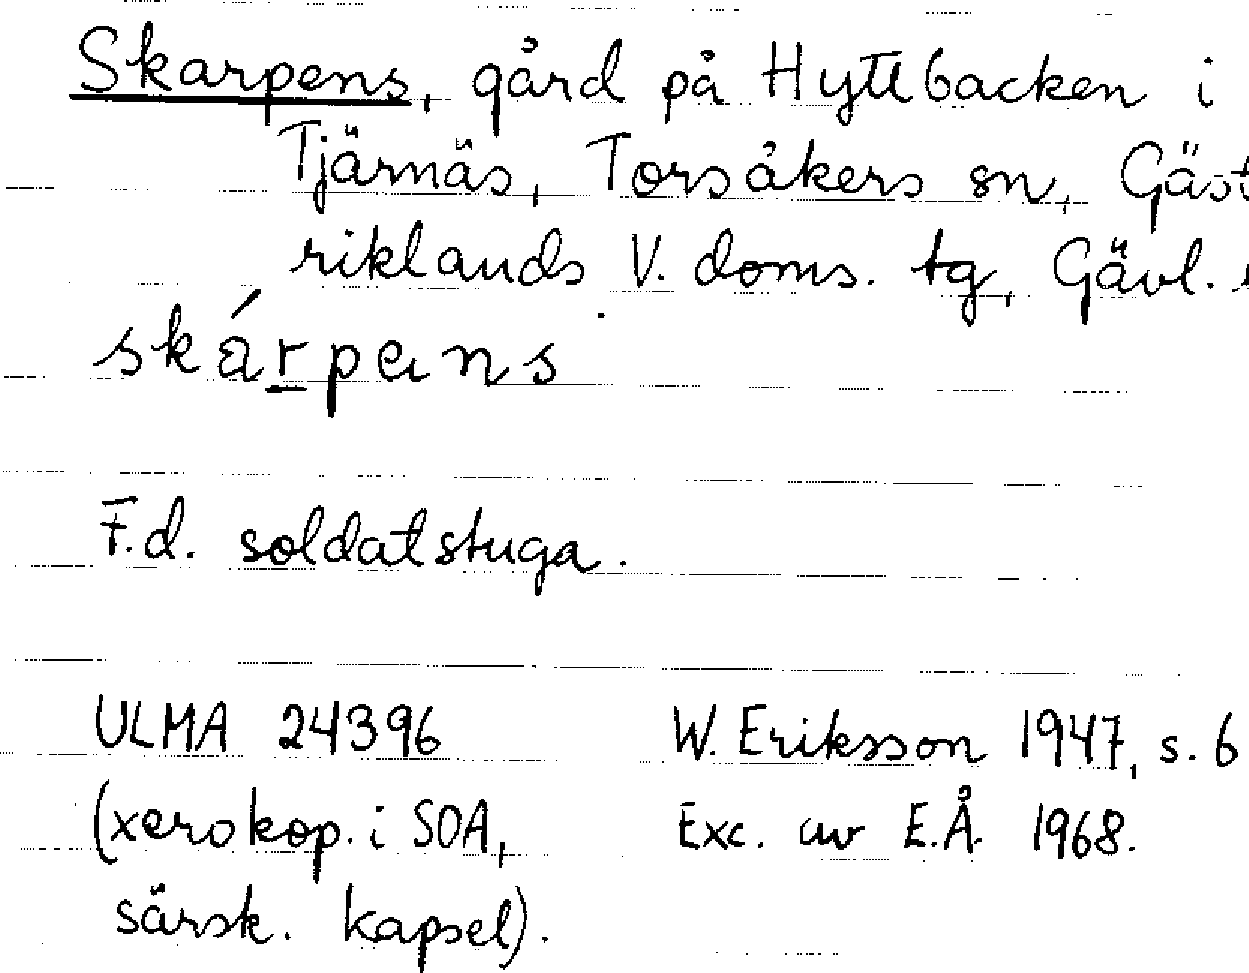 Skarpens, gård på Hyttbacken i
Tjärnäs, Torsåkers sn, Gäst
riklands V. doms. tg, Gävl.
F.d. soldatstuga.
ULMA 24396
(xerokop. i SOA,
särsk. kapsel).
W. Eriksson 1947, s. 6
Exc. av E.Å. 1968.